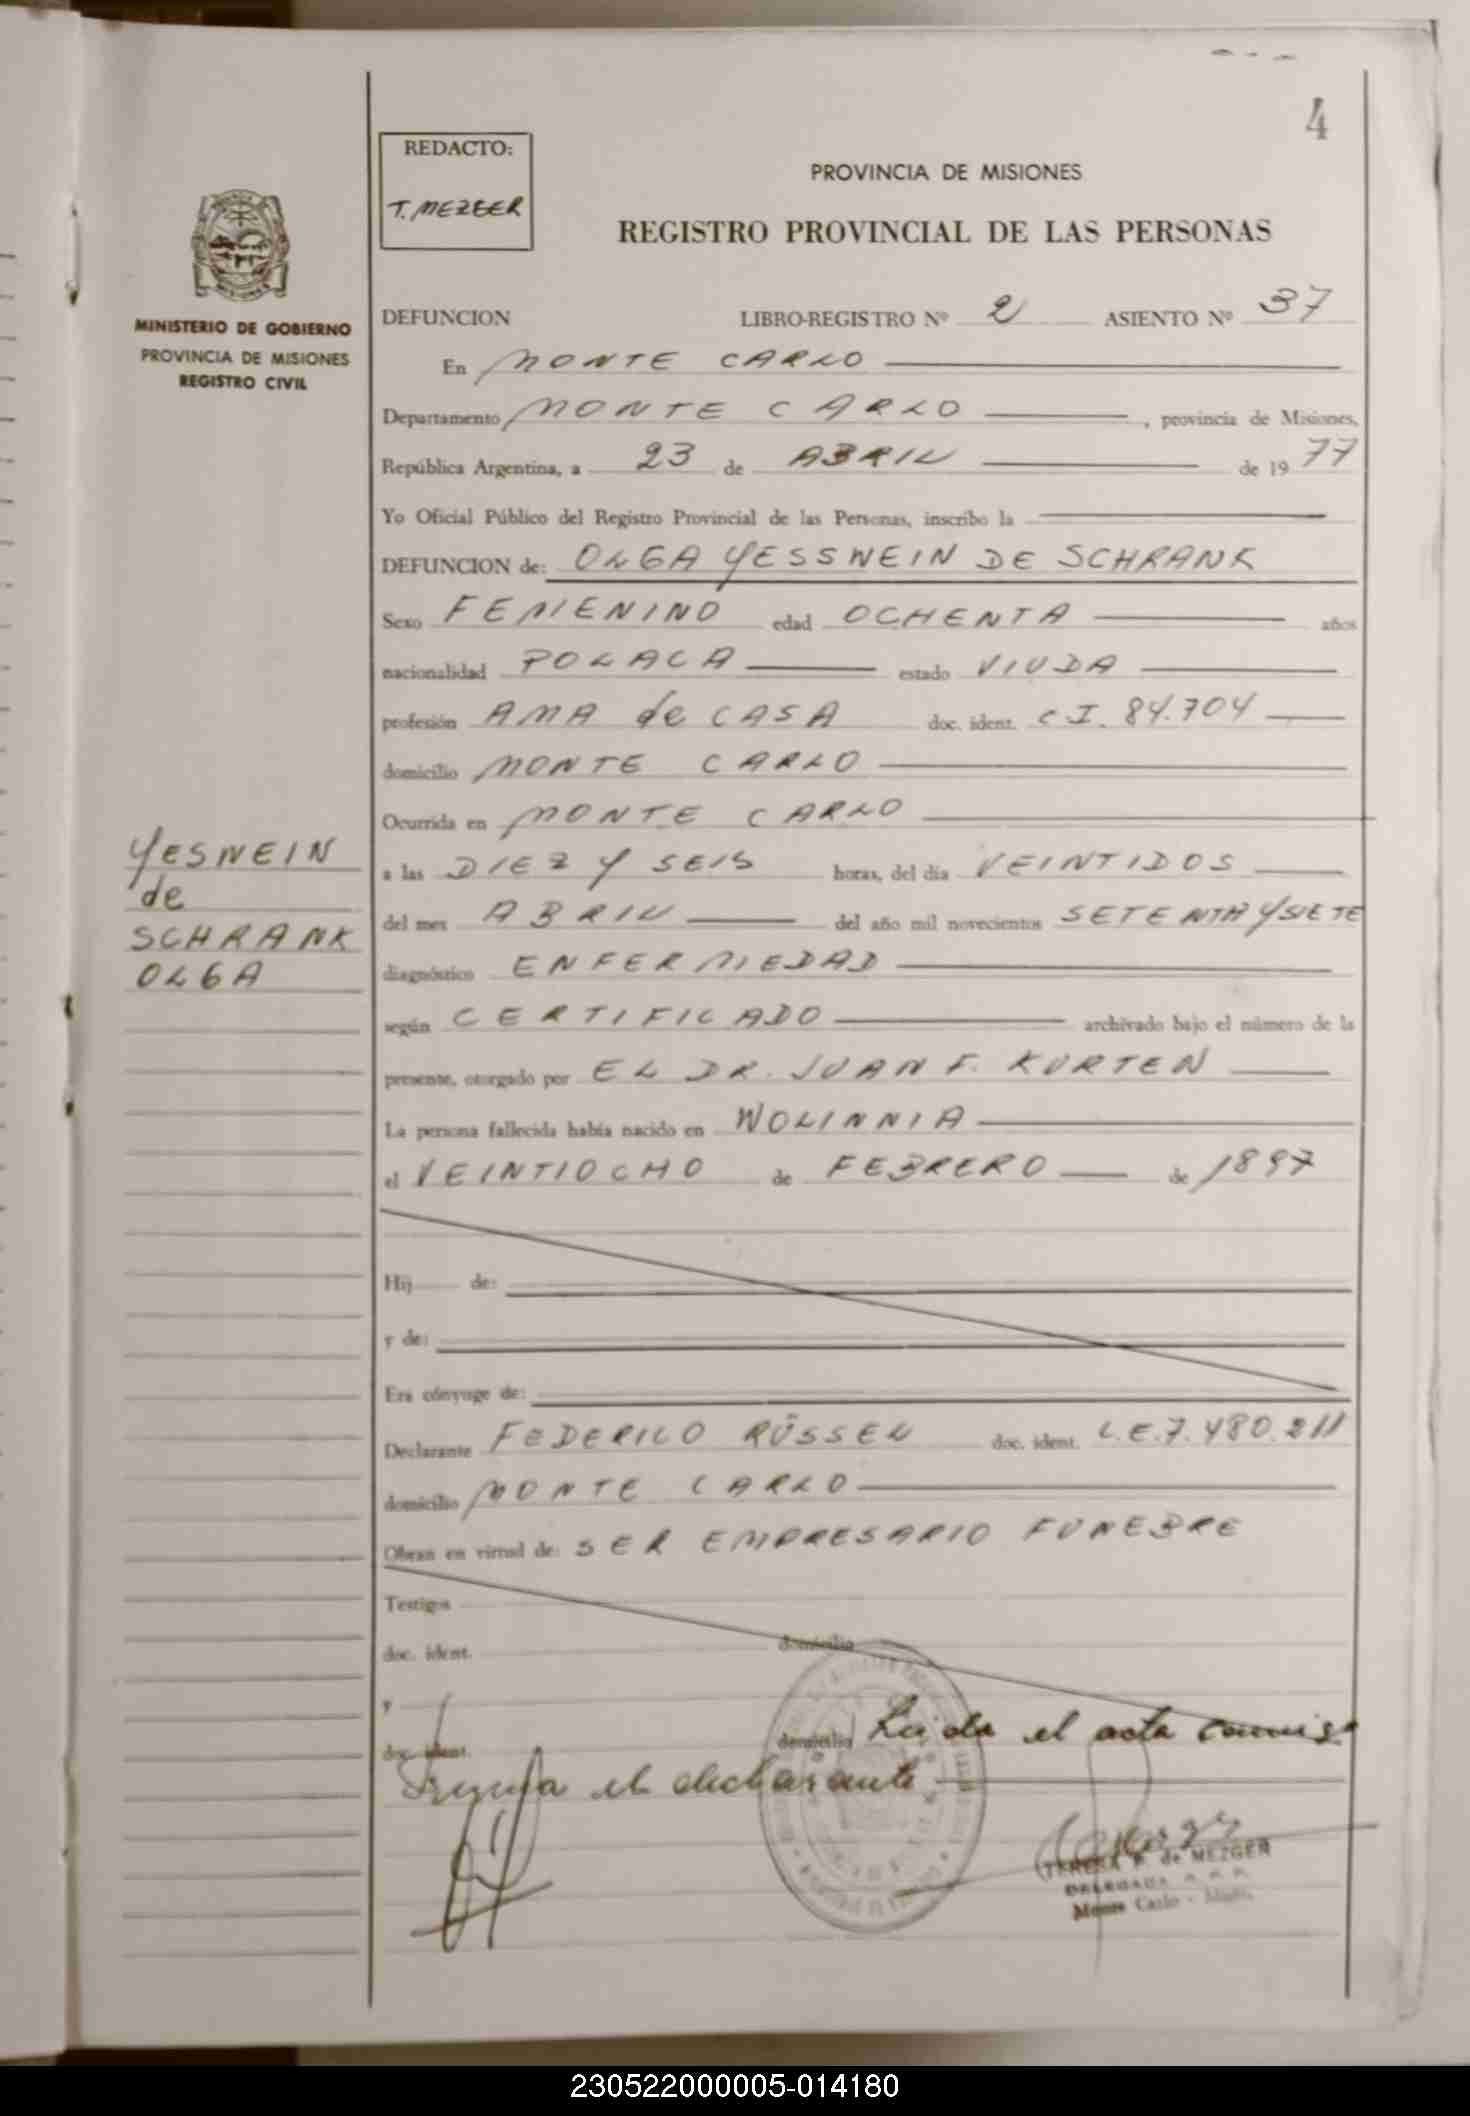 4
REDACTO:
T. MEZGER
PROVINCIA DE MISIONES
REGISTRO PROVINCIAL DE LAS PERSONAS
MINISTERIO DE GOBIERNO
PROVINCIA DE MISIONES
REGISTRO CIVIL
DEFUNCION LIBRO-REGISTRO Nº 2 ASIENTO Nº 37
En MONTE CARLO
Departamento MONTE CARLO, provincia de Misiones,
República Argentina, a 23 de ABRIL de 1977
Yo Oficial Público del Registro Provincial de las Personas, inscribo la
DEFUNCION de: OLGA YESSWEIN DE SCHRANK
Sexo FEMENINO edad OCHENTA años
nacionalidad POLACA estado VIUDA
profesión AMA de CASA doc. ident. C I. 84.704
domicilio MONTE CARLO
Ocurrida en MONTE CARLO
YESWEIN
de
SCHRANK
OLGA
a las DIEZ Y SEIS horas, del día VEINTIDOS
del mes ABRIL del año mil novecientos SETENTA Y SIETE
diagnóstico ENFERMEDAD
según CERTIFICADO archivado bajo el número de la
presente, otorgado por EL DR. JUAN F. KURTEN
La persona fallecida había nacido en WOLINNIA
el VEINTIOCHO de FEBRERO de 1897
Hij de:
y de:
Era cónyuge de:
Declarante FEDERICO RÜSSEL doc. ident. L.E.7.480.211
domicilio MONTE CARLO
Obran en virtud de: SER EMPRESARIO FUNEBRE
Testigos
doc. ident. domicilio
y
doc. ident. domicilio Leída el acta
el declarante
TERESA de MEZGER
DELEGADA
Monte Carlo
230522000005-014180